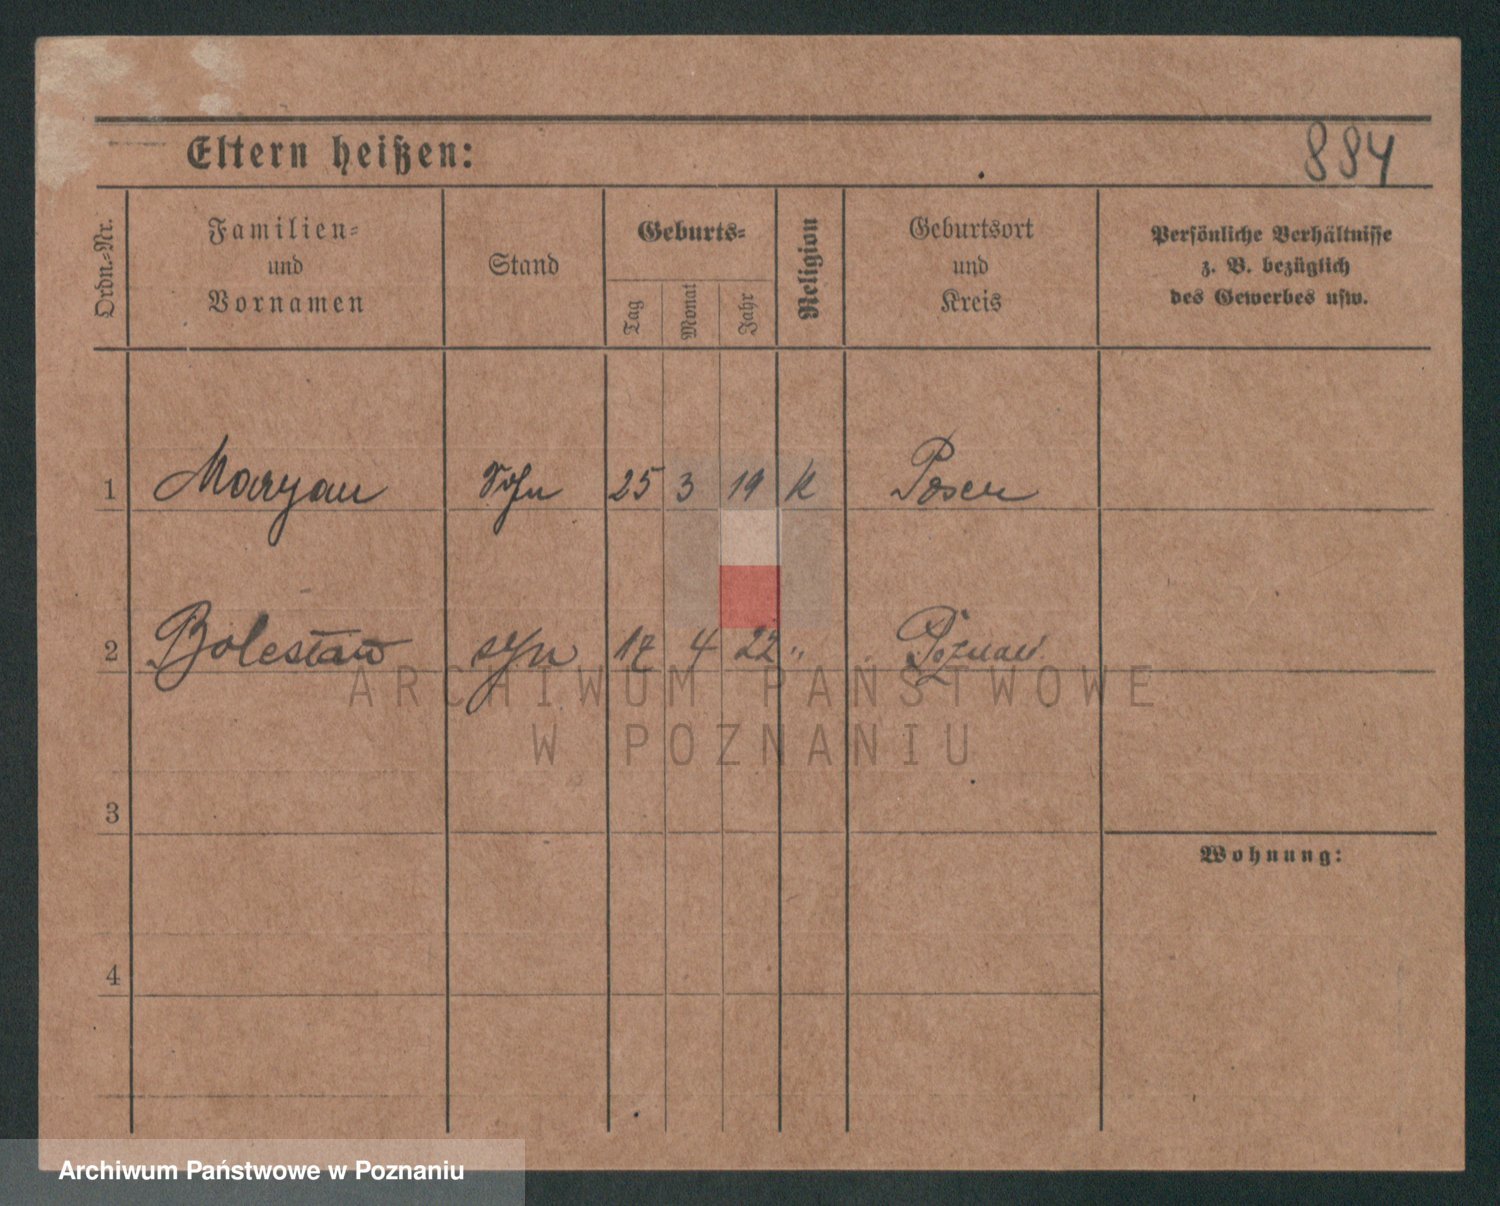 Eltern heißen:
884
Ordn.=Nr.
Familien=
und
Vornamen
Stand
Geburts=
Tag
Monat
Jahr
Religion
Geburtsort
und
Kreis
Persönliche Verhältnisse
z. B. bezüglich
des Gewerbes usw.
1 Maryan Sohn 25 3 19 K Posen
2 Bolesław syn 17 4 22 " Poznań
ARCHIWUM PAŃSTWOWE
W POZNANIU
3
Wohnung:
4
Archiwum Państwowe w Poznaniu